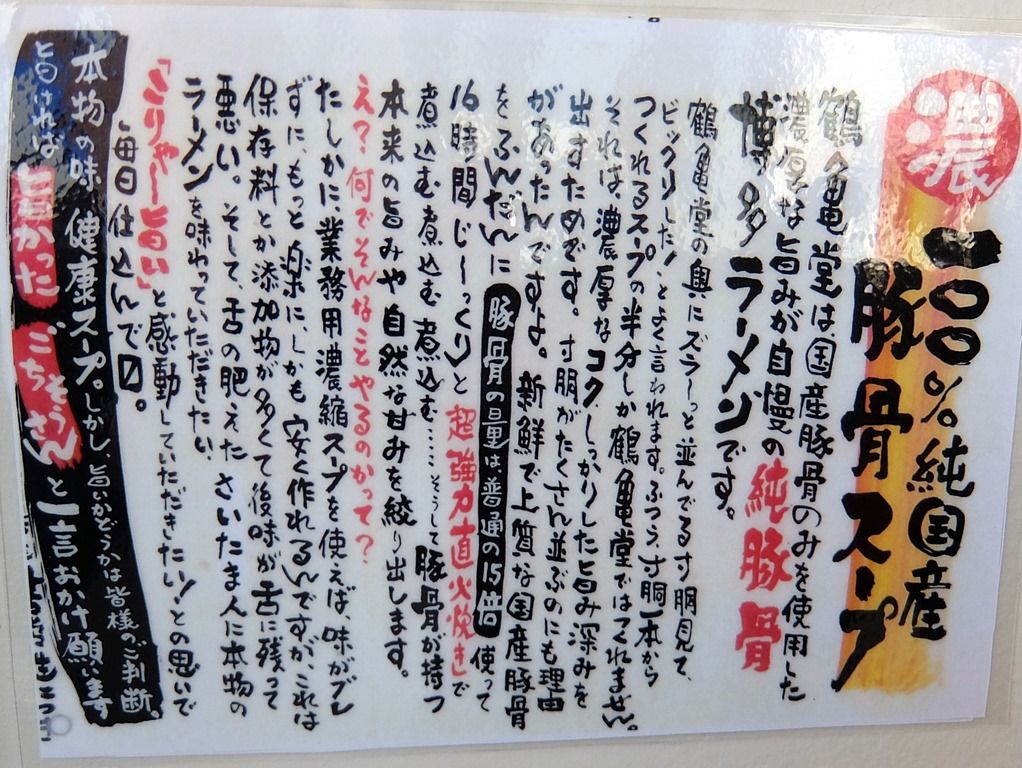 濃
一〇〇%純国産
豚骨スープ
鶴亀堂は国産豚骨のみを使用した
濃厚な旨みが自慢の純豚骨
博多ラーメンです。
鶴亀堂の奥にズラーっと並んでる寸胴見て、
ビックリした!とよく言われます。ふつう、寸胴一本から
つくれるスープの半分しか鶴亀堂ではつくれません。
それは濃厚なコクしっかりした旨み深みを
出すためです。寸胴がたくさん並ぶのにも理由
があったんですよ。新鮮で上質な国産豚骨
をふんだんに豚骨の量は、普通の1.5倍使って
16時間じ〜っくりと超強力直火炊きで
煮込む煮込む煮込む……そうして豚骨が持つ
本来の旨みや自然な甘みを絞り出します。
え?何でそんなことやるのかって?
たしかに、業務用濃縮スープを使えば、味がブレ
ずにもっと楽に、しかも安く作れるんですが、これは
保存料とか添加物が多くて後味が舌に残って
悪い。そして、舌の肥えたさいたま人に本物の
ラーメンを味わっていただきたい。
「こりゃ〜旨い」と感動していただきたい!との思いで
毎日仕込んで〼。
本物の味 健康スープ。しかし、旨いかどうかは皆様のご判断。
旨ければ 旨かった ごちそうさんと一言おかけ願います